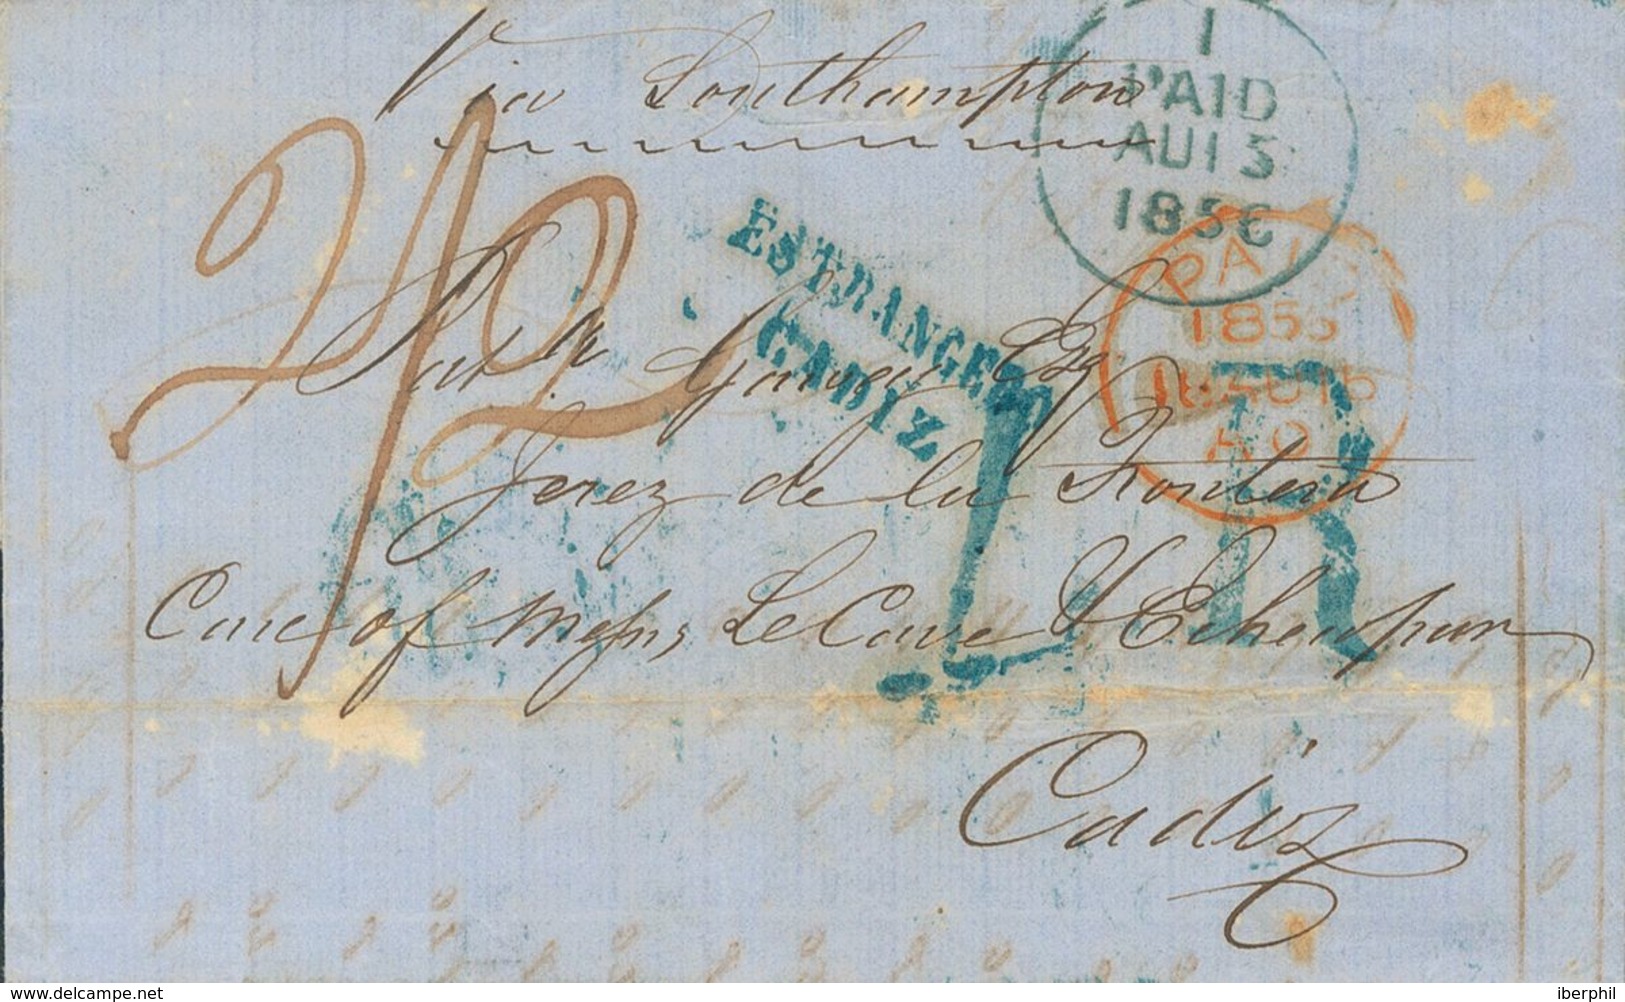 Via Southampton
1
PAID
AU 13
1856
2/2
ESTRANGERO
CADIZ
PAID
1856
18 AU 15
Patk Garvey Esq
Jerez de la Frontera
1 R
Care of Messrs Le Cave & Echecopar
Cadiz
www.delcampe.net
iberphil